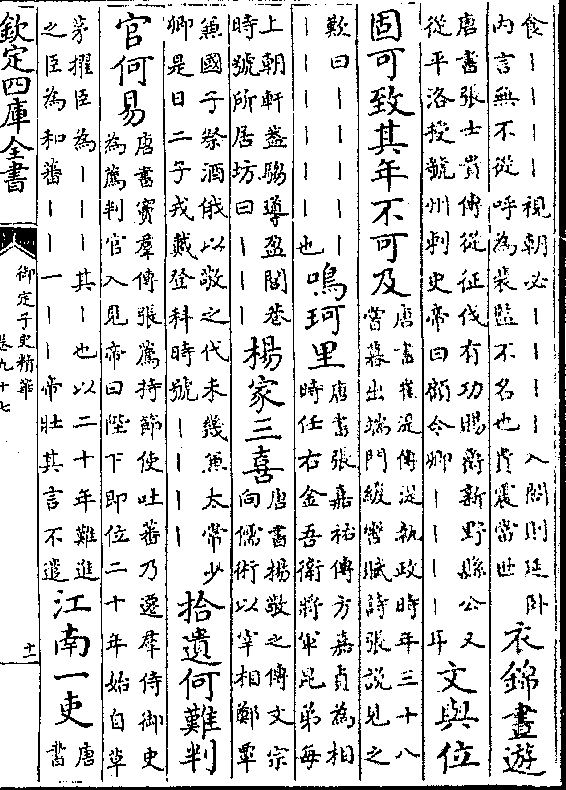 食｜｜｜｜視朝必｜｜｜｜入閤則延卧
內言無不從呼為裴監不名也貴震當世
衣錦晝遊
唐書張士貴傳從征伐有功賜爵新野縣公又
從平洛授虢州刺史帝曰顧令卿｜｜｜｜耳
文與位
固可致其年不可及
唐書崔湜傳湜執政時年三十八
嘗暮出端門緩轡賦詩張說見之
歎曰｜｜｜｜｜｜
｜｜｜｜｜｜也
鳴珂里
唐書張嘉祐傳方嘉貞為相
時任右金吾衛將軍昆弟每
上朝軒蓋騶導盈閭巷
時號所居坊曰｜｜｜
楊家三喜
唐書楊敬之傳文宗
向儒術以宰相鄭覃
兼國子祭酒俄以敬之代未幾兼太常少
卿是日二子戎戴登科時號｜｜｜｜
拾遺何難判
官何易
唐書竇羣傳張薦持節使吐蕃乃遷羣侍御史
為薦判官入見帝曰陛下即位二十年始自草
茅擢臣為｜｜｜其｜也以二十年難進
之臣為和蕃｜｜｜一｜｜｜帝壯其言不遣
江南一吏
唐
書
欽定四庫全書
御定子史精華
卷九十七
十一